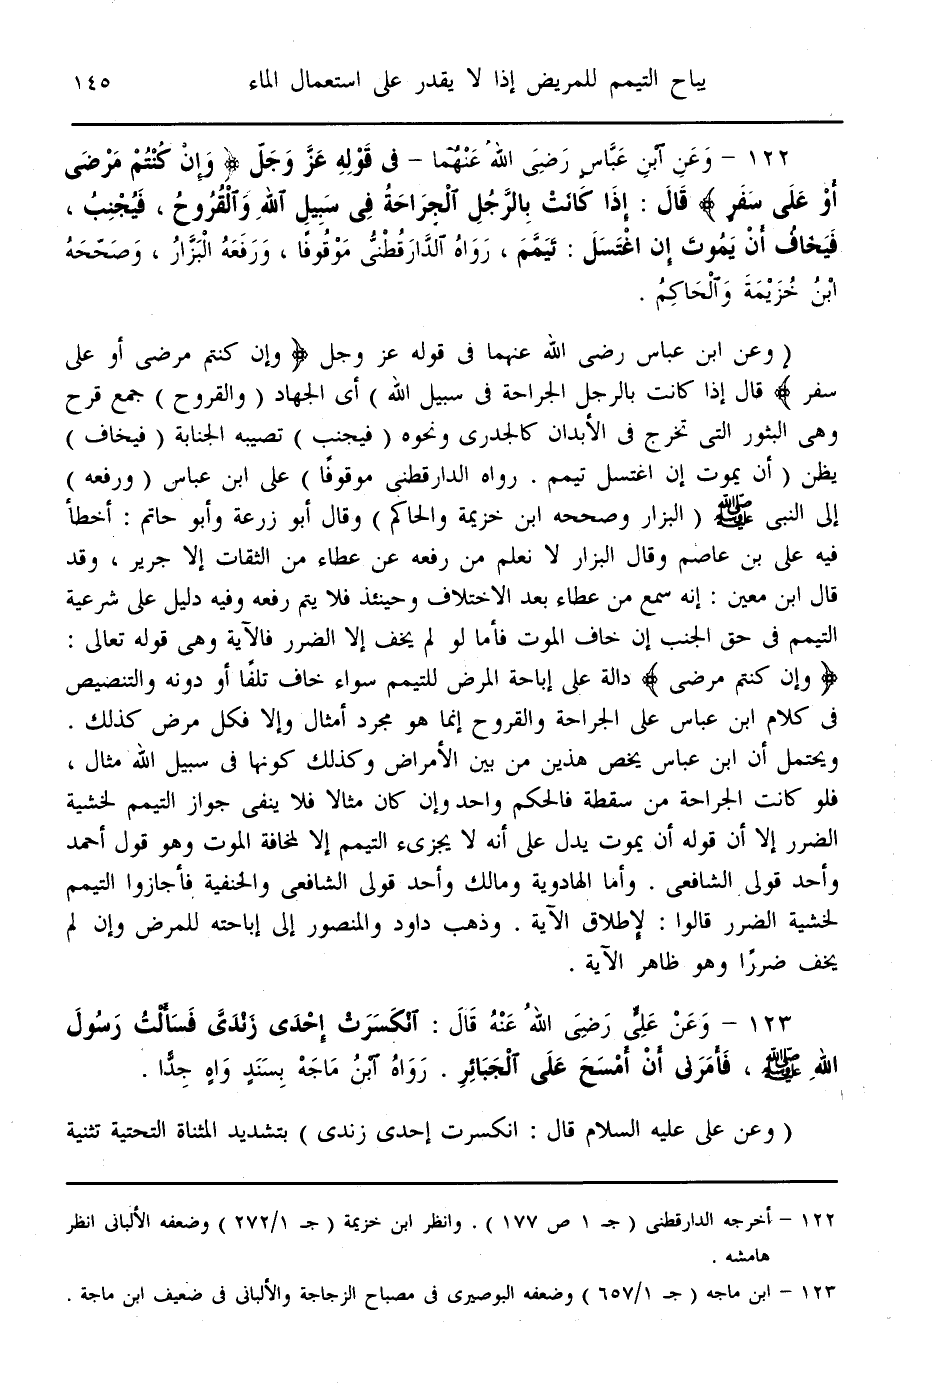 يباح التيمم للمريض إذا لا يقدر على استعمال الماء ١٤٥
١٢٢ – وَعَنِ ٱبْنِ عَبَّاسٍ رَضِيَ اللهُ عَنْهُمَا – فى قَوْلِهِ عَزَّ وَجَلّ ﴿ وَإِنْ كُنْتُمْ مَرْضَى
أَوْ عَلَى سَفَرٍ ﴾ قَالَ : إِذَا كَانَتْ بِالرَّجُلِ ٱلْجِرَاحَةُ فِي سَبِيلِ ٱللهِ وَٱلْقُرُوحُ ، فَيُجْنِبُ ،
فَيَخَافُ أَنْ يَمُوتَ إِن اغْتَسَلَ : تَيَمَّمَ ، رَوَاهُ ٱلدَّارَقُطْنىُّ مَوْقُوفًا ، وَرَفَعَهُ الْبَزَّارُ ، وَصَحّحَهُ
ابْنُ خُزَيْمَةَ وَٱلْحَاكِمُ .
( وعن ابن عباس رضى الله عنهما فى قوله عز وجل ﴿ وإن كنتم مرضى أو على
سفر ﴾ قال إذا كانت بالرجل الجراحة فى سبيل الله ) أى الجهاد ( والقروح ) جمع قرح
وهى البثور التى تخرج فى الأبدان كالجدرى ونحوه ( فيجنب ) تصيبه الجنابة ( فيخاف )
يظن ( أن يموت إن اغتسل تيمم . رواه الدارقطنى موقوفًا ) على ابن عباس ( ورفعه )
إلى النبى ﷺ ( البزار وصححه ابن خزيمة والحاكم ) وقال أبو زرعة وأبو حاتم : أخطأ
فيه على بن عاصم وقال البزار لا نعلم من رفعه عن عطاء من الثقات إلا جرير ، وقد
قال ابن معين : إنه سمع من عطاء بعد الاختلاف وحينئذ فلا يتم رفعه وفيه دليل على شرعية
التيمم فى حق الجنب إن خاف الموت فأما لو لم يخف إلا الضرر فالآية وهى قوله تعالى :
﴿ وإن كنتم مرضى ﴾ دالة على إباحة المرض للتيمم سواء خاف تلفًا أو دونه والتنصيص
فى كلام ابن عباس على الجراحة والقروح إنما هو مجرد أمثال وإلا فكل مرض كذلك .
ويحتمل أن ابن عباس يخص هذين من بين الأمراض وكذلك كونها فى سبيل الله مثال ،
فلو كانت الجراحة من سقطة فالحكم واحد وإن كان مثالا فلا ينفى جواز التيمم لخشية
الضرر إلا أن قوله أن يموت يدل على أنه لا يجزىء التيمم إلا لمخافة الموت وهو قول أحمد
وأحد قولى الشافعى . وأما الهادوية ومالك وأحد قولى الشافعى والحنفية فأجازوا التيمم
لخشية الضرر قالوا : لإطلاق الآية . وذهب داود والمنصور إلى إباحته للمرض وإن لم
يخف ضررًا وهو ظاهر الآية .
١٢٣ – وَعَنْ عَلِيٍّ رَضِيَ اللهُ عَنْهُ قَالَ : ٱنْكَسَرَتْ إِحْدَى زَنْدَىَّ فَسَأَلْتُ رَسُولَ
اللهِ ﷺ ، فَأَمَرَنى أَنْ أَمْسَحَ عَلَى ٱلْجَبَائِرِ . رَوَاهُ ٱبْنُ مَاجَهْ بِسَنَدٍ وَاهٍ جِدًّا .
( وعن على عليه السلام قال : انكسرت إحدى زندى ) بتشديد المثناة التحتية تثنية
١٢٢ – أخرجه الدارقطنى ( جـ ١ ص ١٧٧ ) . وانظر ابن خزيمة ( جـ ٢٧٢/١ ) وضعفه الألبانى انظر
هامشه .
١٢٣ – ابن ماجه ( جـ ٦٥٧/١ ) وضعفه البوصيرى فى مصباح الزجاجة والألبانى فى ضعيف ابن ماجة .